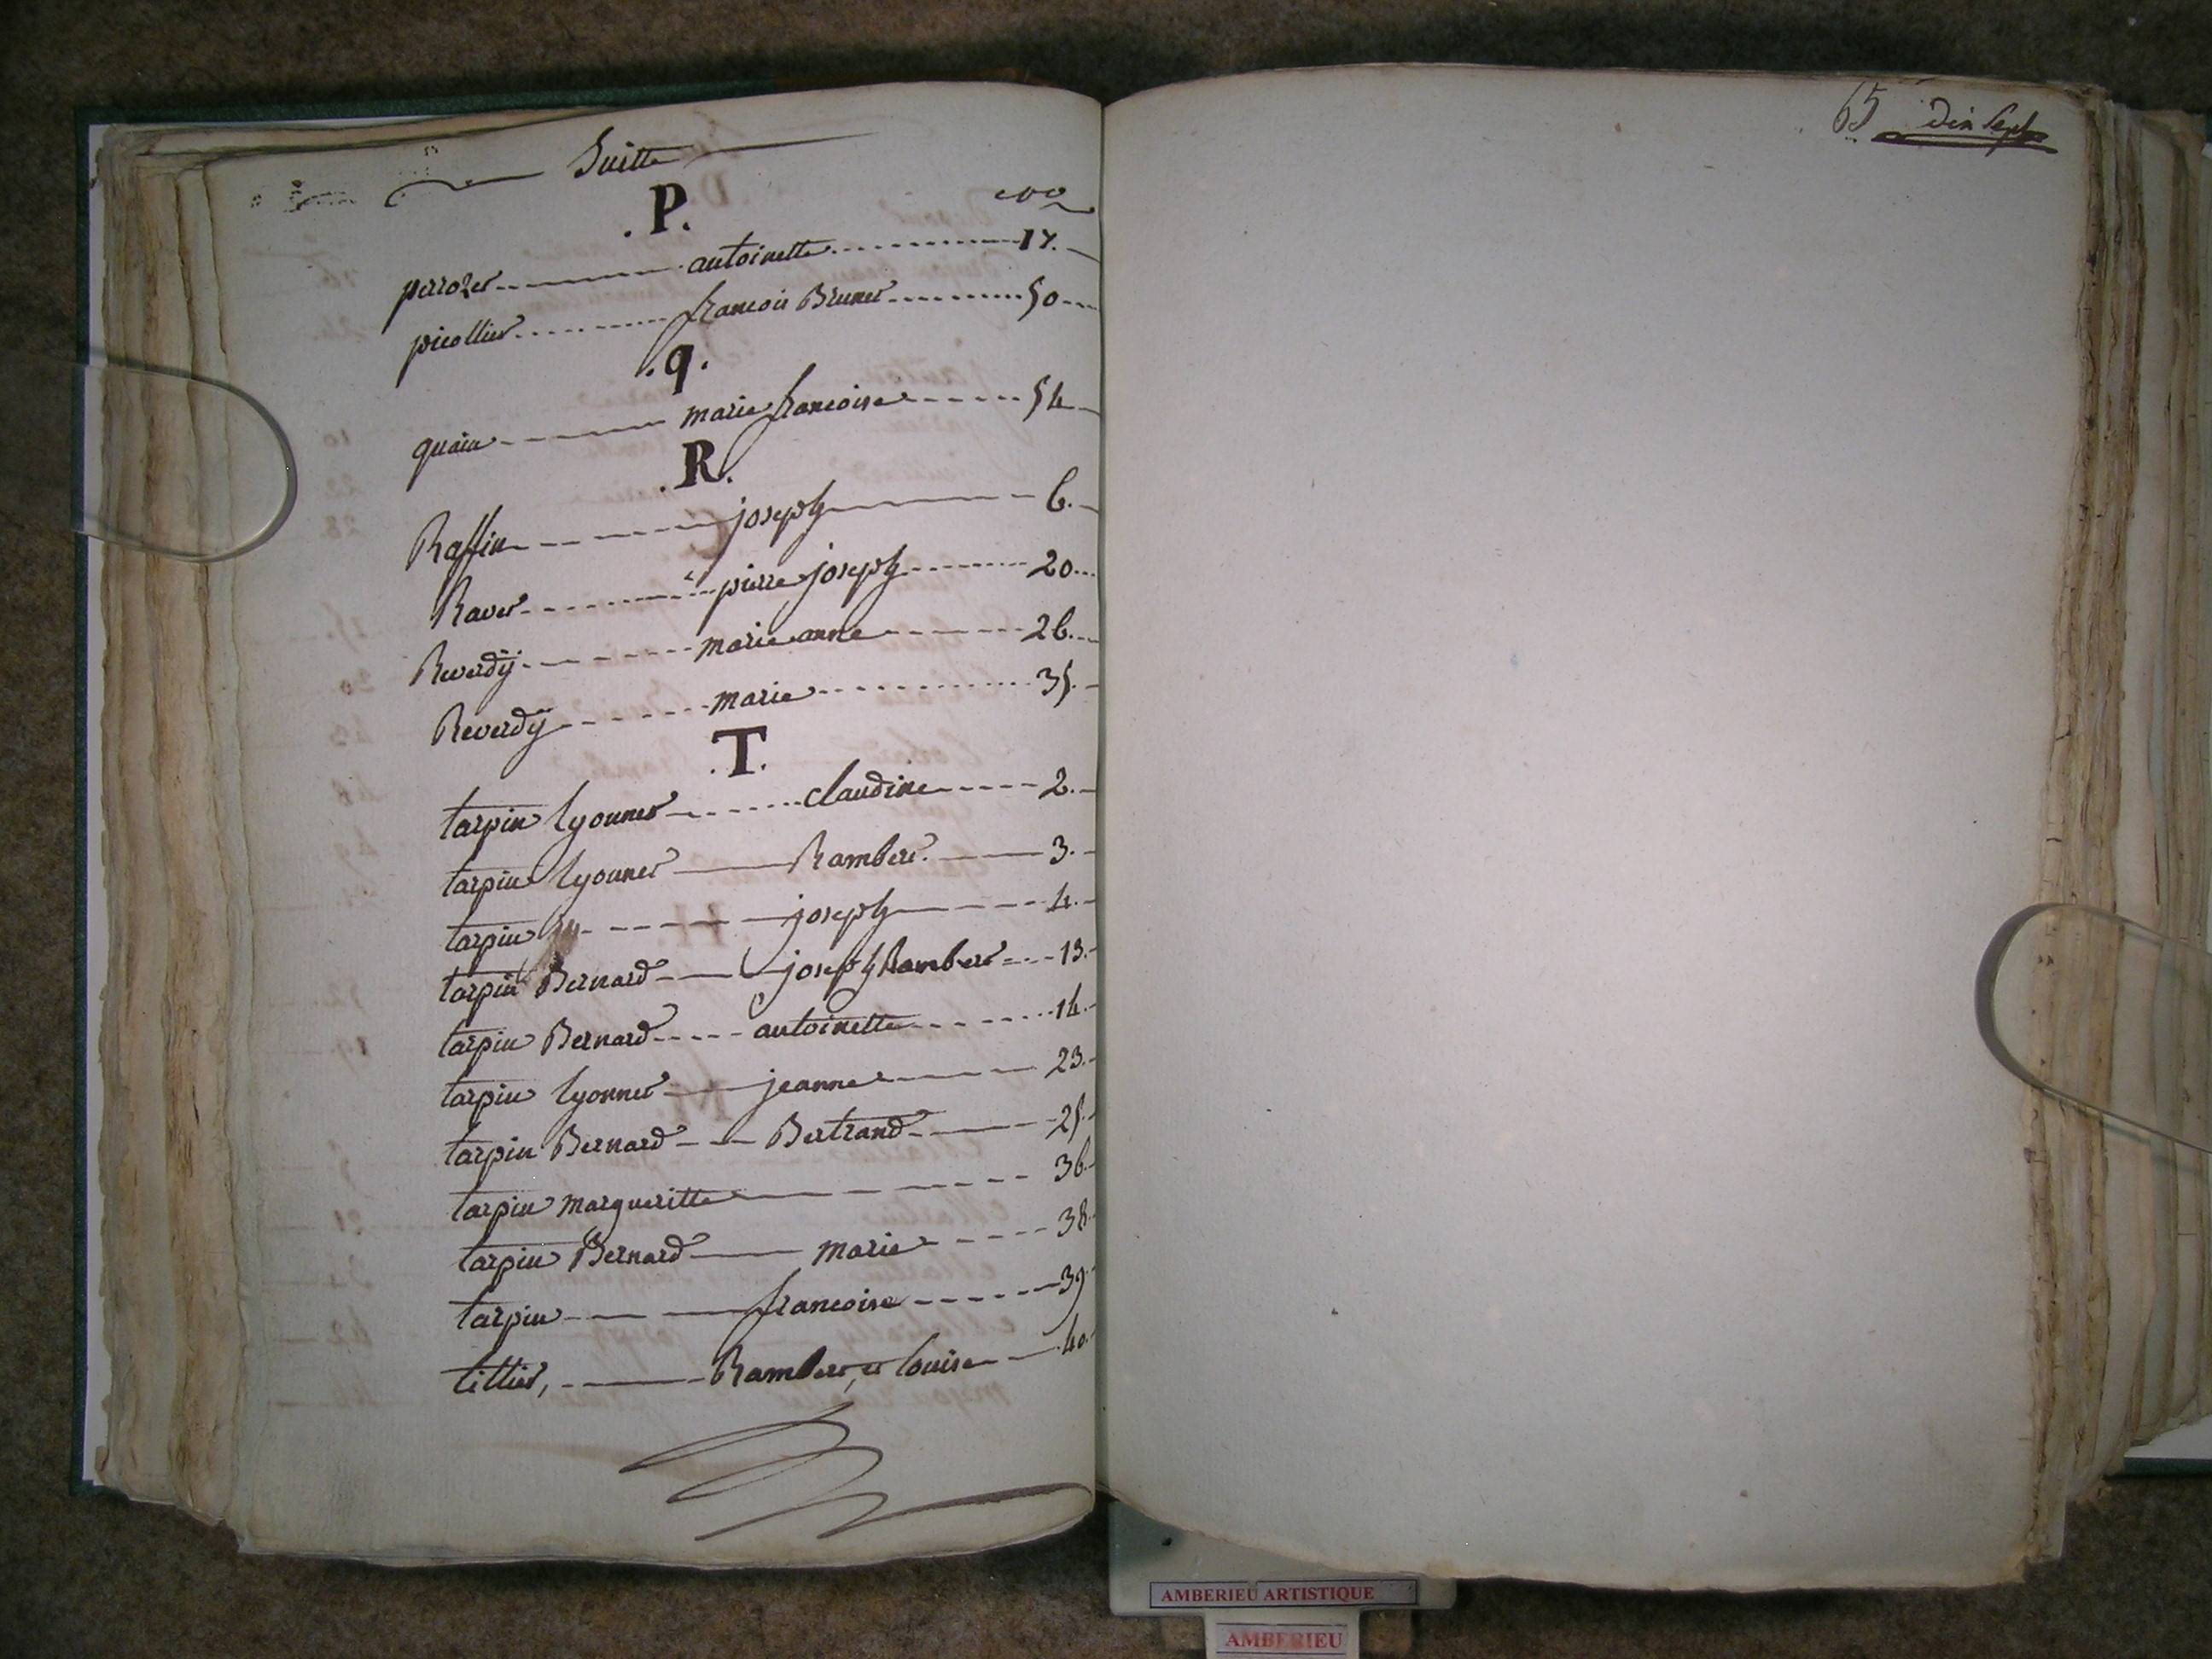 Suitte
.P.
perrozet antoinette 17.
picollier francois Brunet 50
.q.
quain marie francoise 54
.R.
Raffin joseph 6.
Ravet pierre joseph 20
Reverdÿ marie anne 26.
Reverdÿ marie 35.
.T.
tarpin lyonnet claudine 2.
tarpin lyonnet Rambert 3.
tarpin joseph 4.
tarpin Bernard joseph Rambert 13.
tarpin Bernard antoinette 14.
tarpin lyonnet jeanne 23.
tarpin Bernard Bertrand 25.
tarpin margueritte 36.
tarpin Bernard marie 38.
tarpin francoise 39.
tillier, Rambert, et louise 40.
65 dix sept
AMBERIEU ARTISTIQUE
AMBERIEU